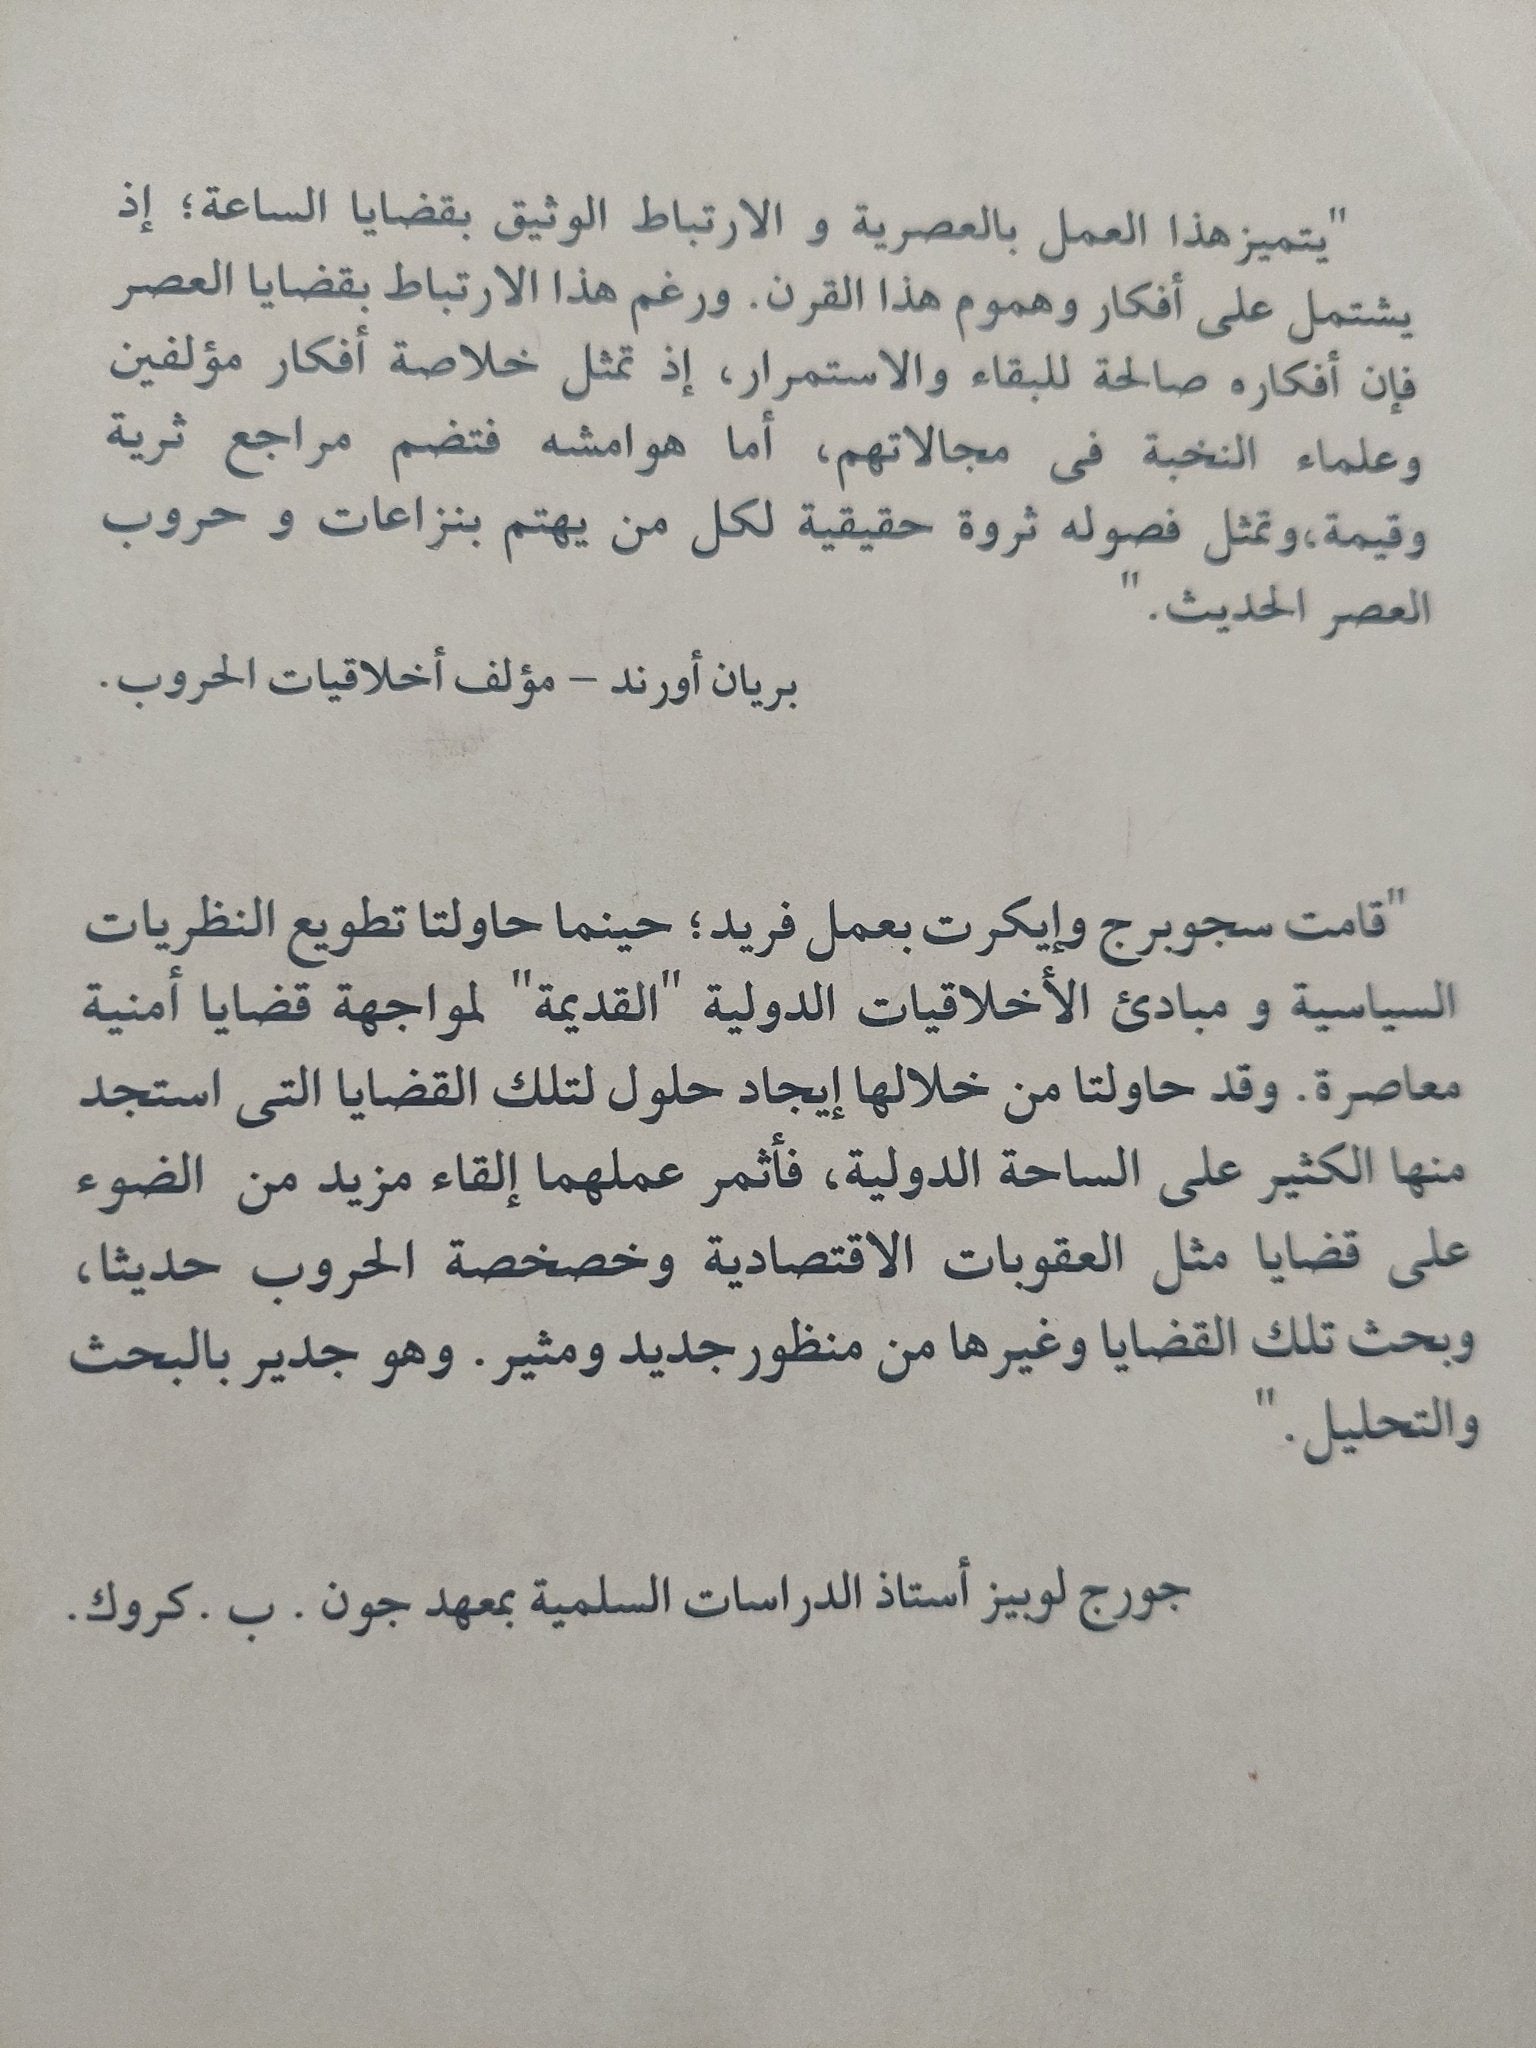 "يتميزهذا العمل بالعصرية و الارتباط الوثيق بقضايا الساعة؛ إذ
يشتمل على أفكار وهموم هذا القرن. ورغم هذا الارتباط بقضايا العصر
فإن أفكاره صالحة للبقاء والاستمرار، إذ تمثل خلاصة أفكار مؤلفين
وعلماء النخبة فى مجالاتهم، أما هوامشه فتضم مراجع ثرية
وقيمة،وتمثل فصوله ثروة حقيقية لكل من يهتم بنزاعات و حروب
العصر الحديث."
بريان أورند – مؤلف أخلاقيات الحروب.
"قامت سجوبرج وإيكرت بعمل فريد؛ حينما حاولتا تطويع النظريات
السياسية و مبادئ الأخلاقيات الدولية "القديمة" لمواجهة قضايا أمنية
معاصرة. وقد حاولتا من خلالها إيجاد حلول لتلك القضايا التى استجد
منها الكثير على الساحة الدولية، فأثمر عملهما إلقاء مزيد من الضوء
على قضايا مثل العقوبات الاقتصادية وخصخصة الحروب حديثا،
وبحث تلك القضايا وغيرها من منظور جديد ومثير. وهو جدير بالبحث
والتحليل."
جورج لوبيز أستاذ الدراسات السلمية بمعهد جون . ب .كروك.